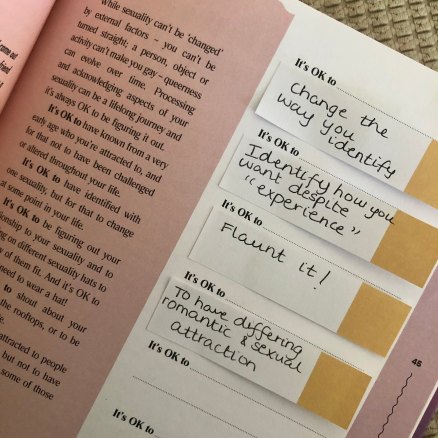 While sexuality can't be 'changed'
by external factors – you can't be
turned straight; a person, object or
activity can't make you gay – queerness
can evolve over time. Processing
and acknowledging aspects of your
sexuality can be a lifelong journey and
it's always OK to be figuring it out.
It's OK to have known from a very
early age who you're attracted to, and
for that not to have been challenged
or altered throughout your life.
It's OK to have identified with
one sexuality, but for that to change
at some point in your life.
It's OK to be figuring out your
relationship to your sexuality and to
on different sexuality hats to
of them fit. And it's OK to
need to wear a hat!
to shout about your
the rooftops, or to be
attracted to people
but not to have
some of those
It's OK to
Change the
way you
identify
It's OK to
Identify how you
want despite
"experience"
It's OK to
Flaunt it!
It's OK to
To have differing
romantic & sexual
attraction
It's OK to
It's OK to
45